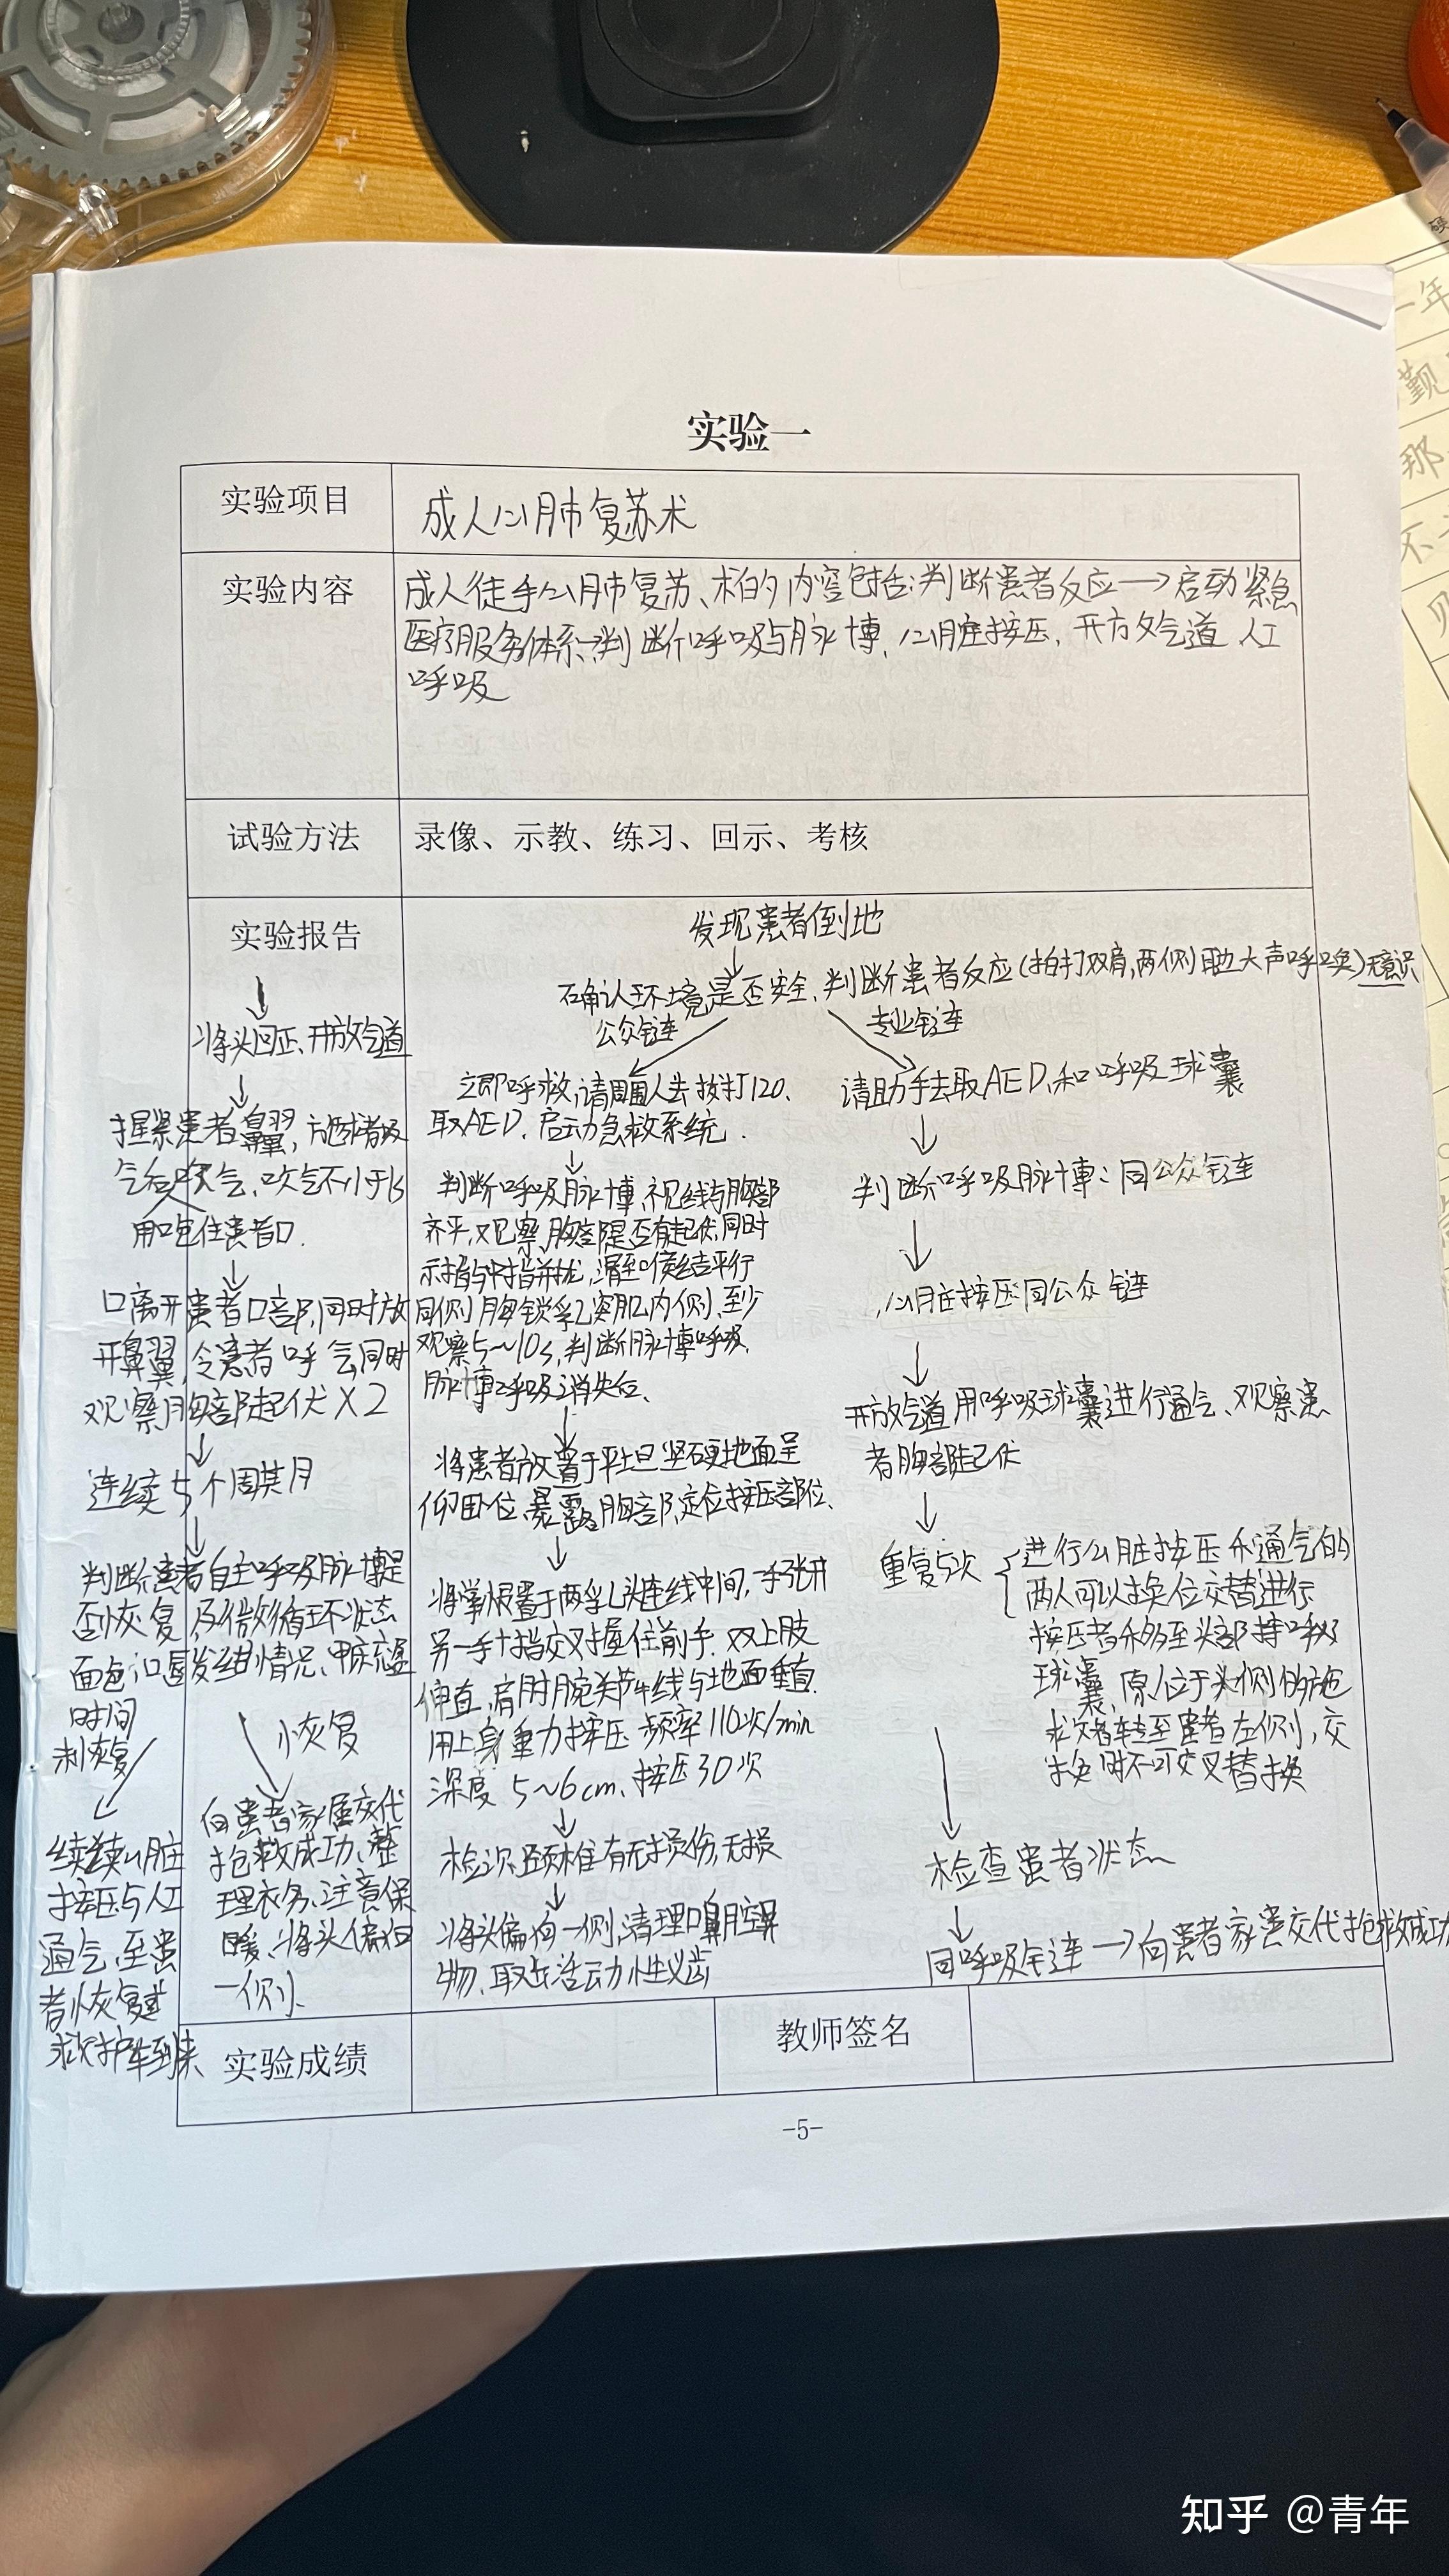 实验一
实验项目
成人心肺复苏术
实验内容
成人徒手心肺复苏、术的内容包括:判断患者反应→启动紧急
医疗服务体系→判断呼吸与脉博,心脏按压,开放气道 人工
呼吸
试验方法
录像、示教、练习、回示、考核
实验报告
发现患者倒地
确认环境是否安全,判断患者反应(拍打双肩,两侧耳边大声呼唤)无意识
公众链
专业链
立即呼救,请周围人去拨打120、
取AED、启动急救系统.
判断呼吸脉博,视线与胸部
齐平,观察胸部是否有起伏,同时
示指与中指并拢,滑至喉结平行
同侧胸锁乳突肌内侧,至少
观察5~10s,判断脉博呼吸,
脉博呼吸消失后、
将患者放置于平坦坚硬地面呈
仰卧位,暴露胸部,定位按压部位、
将掌根置于两乳头连线中间,一手张开
另一手十指交叉握住前手,双上肢
伸直,肩肘腕关节连线与地面垂直
用上身重力按压 频率110次/min
深度 5~6cm、按压30次
检次颈椎有无损伤,无损
将头偏向一侧,清理口鼻腔异
物、取出活动性义齿
将头回正、开放气道
捏紧患者鼻翼,施救者吸
气后吹气,吹气不小于1s
用口包住患者口.
口离开患者口部,同时放
开鼻翼,令患者呼气,同时
观察胸部起伏×2
连续5个周期
判断患者自主呼吸脉博是
否恢复,及微循环状态
面色、口唇发绀情况、甲床充盈
时间
未恢复
恢复
继续心脏
按压与人工
通气,至患
者恢复或
救护车到来
向患者家属交代
抢救成功,整
理衣务,注意保
暖,将头偏向
一侧、
请助手去取AED、和呼吸球囊
判断呼吸脉博:同公众链
心脏按压:同公众链
开放气道用呼吸球囊进行通气、观察患
者胸部起伏
重复5次
进行心脏按压和通气的
两人可以换位交替进行
按压者移至头部持呼吸
球囊,原位于头侧的施
救者转至患者左侧,交
换时不可交叉替换
检查患者状态
同呼吸链→向患者家患交代抢救成功
实验成绩
教师签名
-5-
知乎 @青年